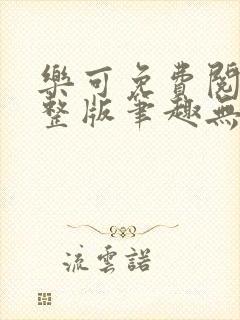 樂可免費閱
整版筆趣無
流雲諾